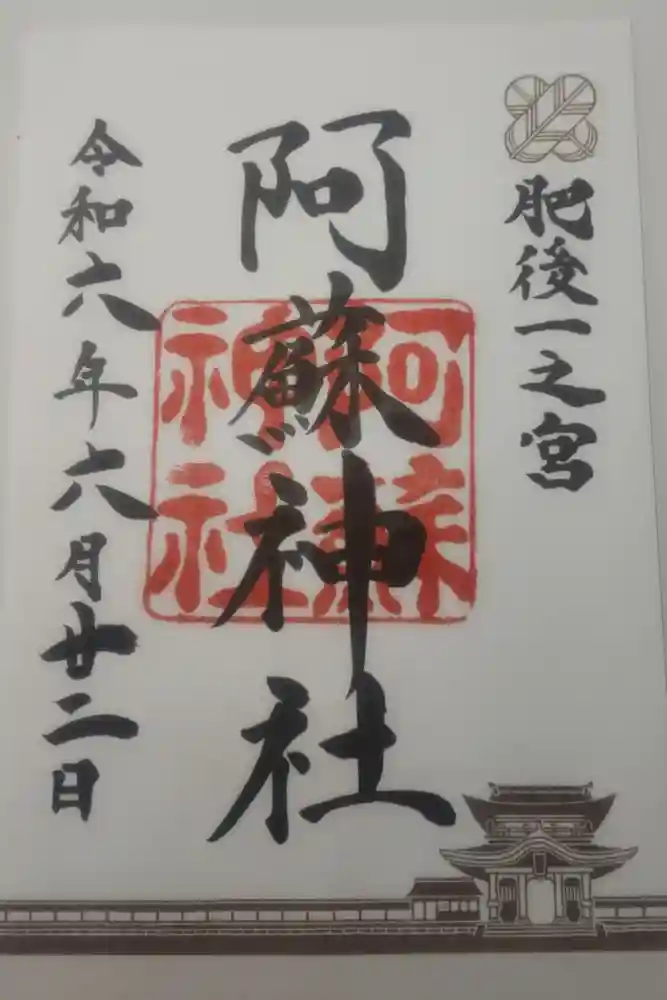 肥後一之宮
阿蘇神社
阿蘇
神社
令和六年六月廿二日